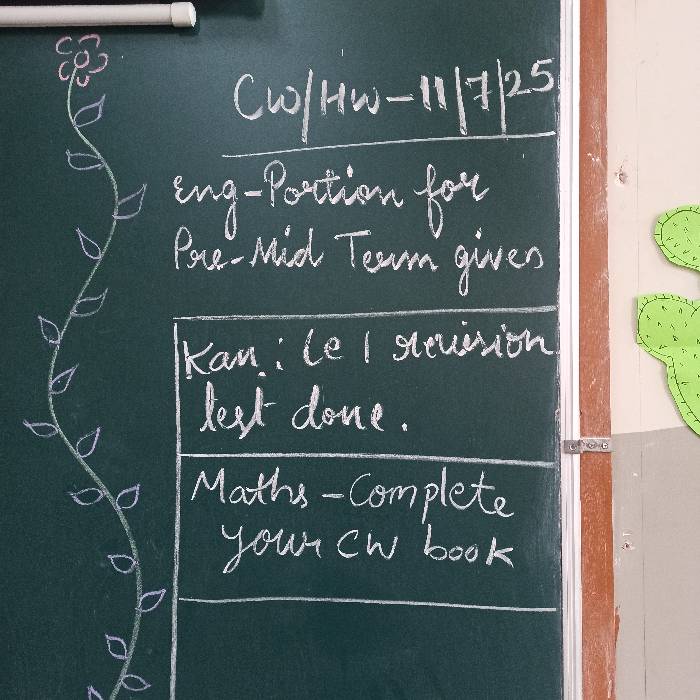 CW/HW-11/7/25
Eng-Portion for
Pre-Mid Term gives
Kan : Le 1 revision
test done.
Maths-Complete
your CW book